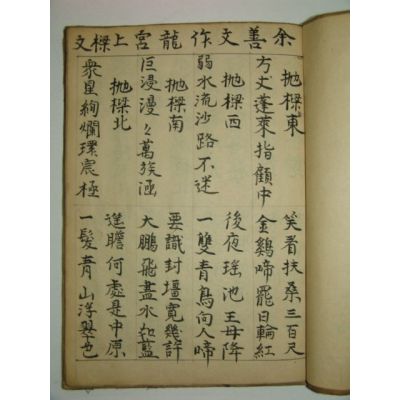 余善文作龍宮上樑文
抛樑東
方丈蓬萊指顧中
笑看扶桑三百尺
金鷄啼罷日輪紅
抛樑西
弱水流沙路不迷
後夜瑶池王母降
一雙青鳥向人啼
抛樑南
巨浸漫々萬族涵
要識封疆寬幾許
大鵬飛盡水如藍
抛樑北
衆星絢爛環宸極
遙瞻何處是中原
一髮青山浮翠色